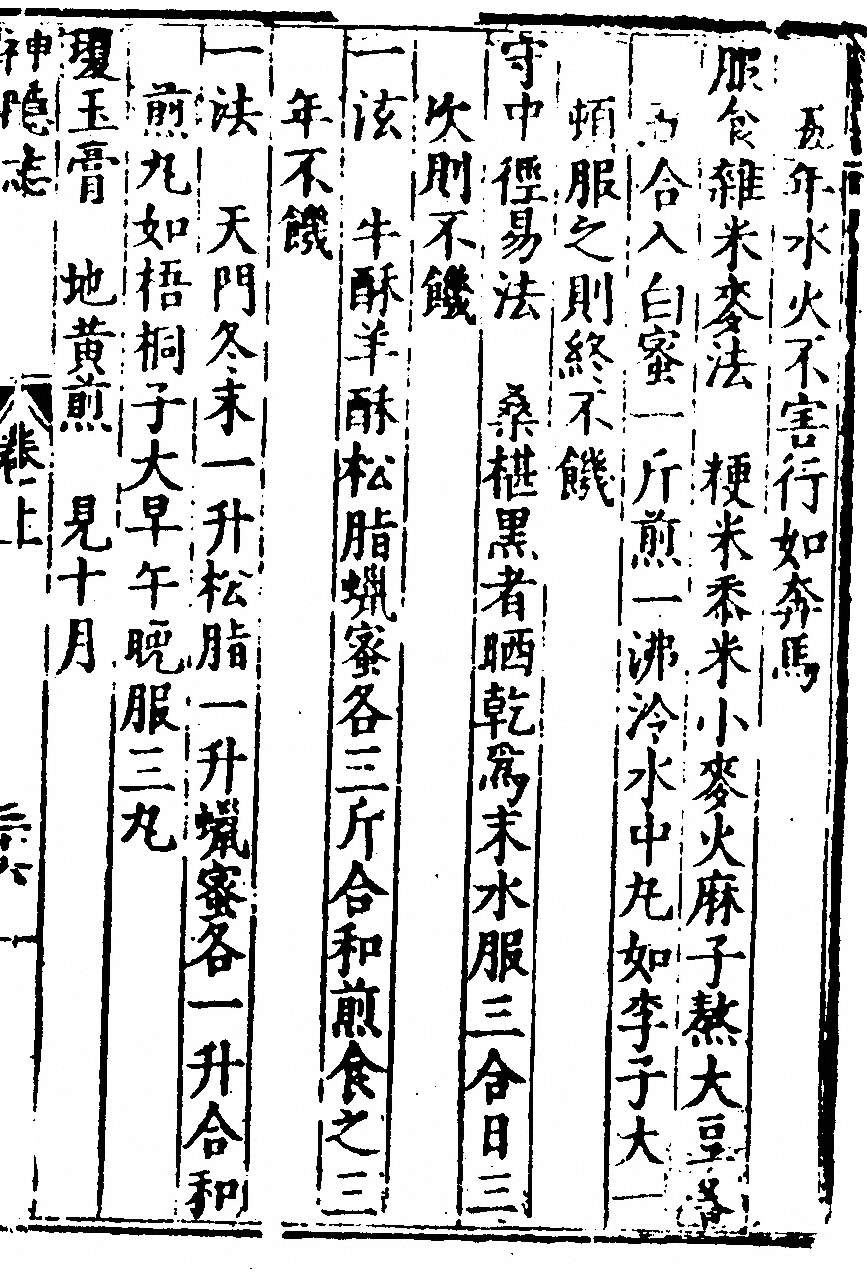 五年水火不害行如奔馬
服食雜米麥法　粳米黍米小麥火麻子熬大豆各
五合入白蜜一斤煎一沸冷水中丸如李子大一
頓服之則終不饑
守中徑易法　桑椹黑者晒乾爲末水服三合日三
次則不饑
一法　牛酥羊酥松脂蠟蜜各三斤合和煎食之三
年不饑
一法　天門冬末一升松脂一升蠟蜜各一升合和
煎丸如梧桐子大早午晚服三丸
瓊玉膏　地黄煎　見十月
神隱志　卷上